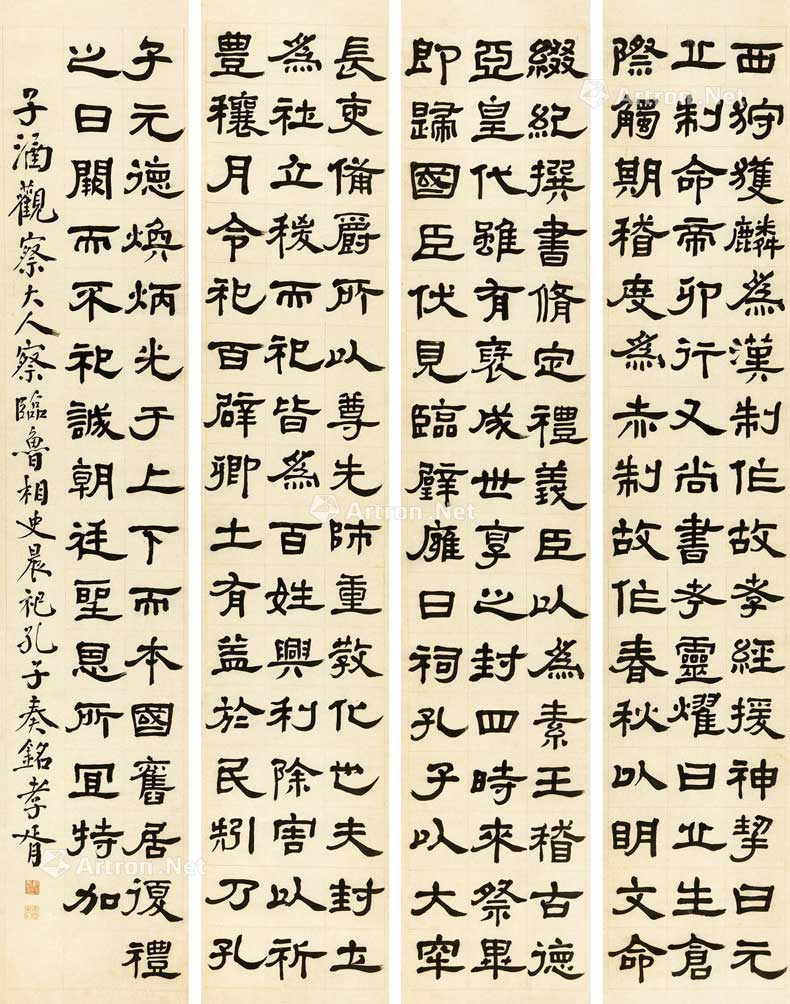 西狩獲麟爲漢制作故孝經援神挈曰元
丘制命帝卯行又尚書考靈燿曰丘生倉
際觸期稽度爲赤制故作春秋以明文命
綴紀撰書脩定禮義臣以爲素王稽古德
亞皇代雖有襃成世享之封四時來祭畢
即歸國臣伏見臨璧廱日祠孔子以大牢
長吏備爵所以尊先師重教化也夫封土
爲社立稷而祀皆爲百姓興利除害以祈
豊穰月令祀百辟卿士有益於民矧乃孔
子元德煥炳光于上下而本國舊居復禮
之日闕而不祀誠朝廷聖恩所宜特加
子涵觀察大人察臨魯相史晨祀孔子奏銘孝胥
Artron.Net
Artron.Net
Artron.Net
Artron.Net